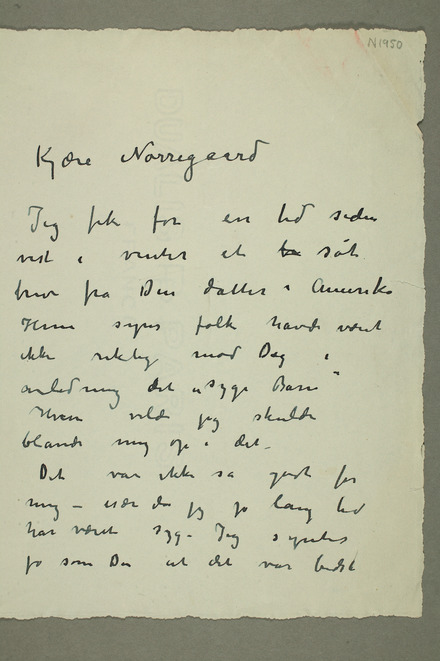 N1950
Kjære Nørregaard
Jeg fik for en tid siden
vist i vinter et søt
brev fra Din datter i Amerika
Hun synes folk havde været
ikke riktig mod Dig i
anledning det „syge Barn"
Hun vilde jeg skulde
blande mig op i det.
Det var ikke så godt for
mig – især da jeg jo lang tid
har været syg. Jeg syntes
jo som Du at det var bedst